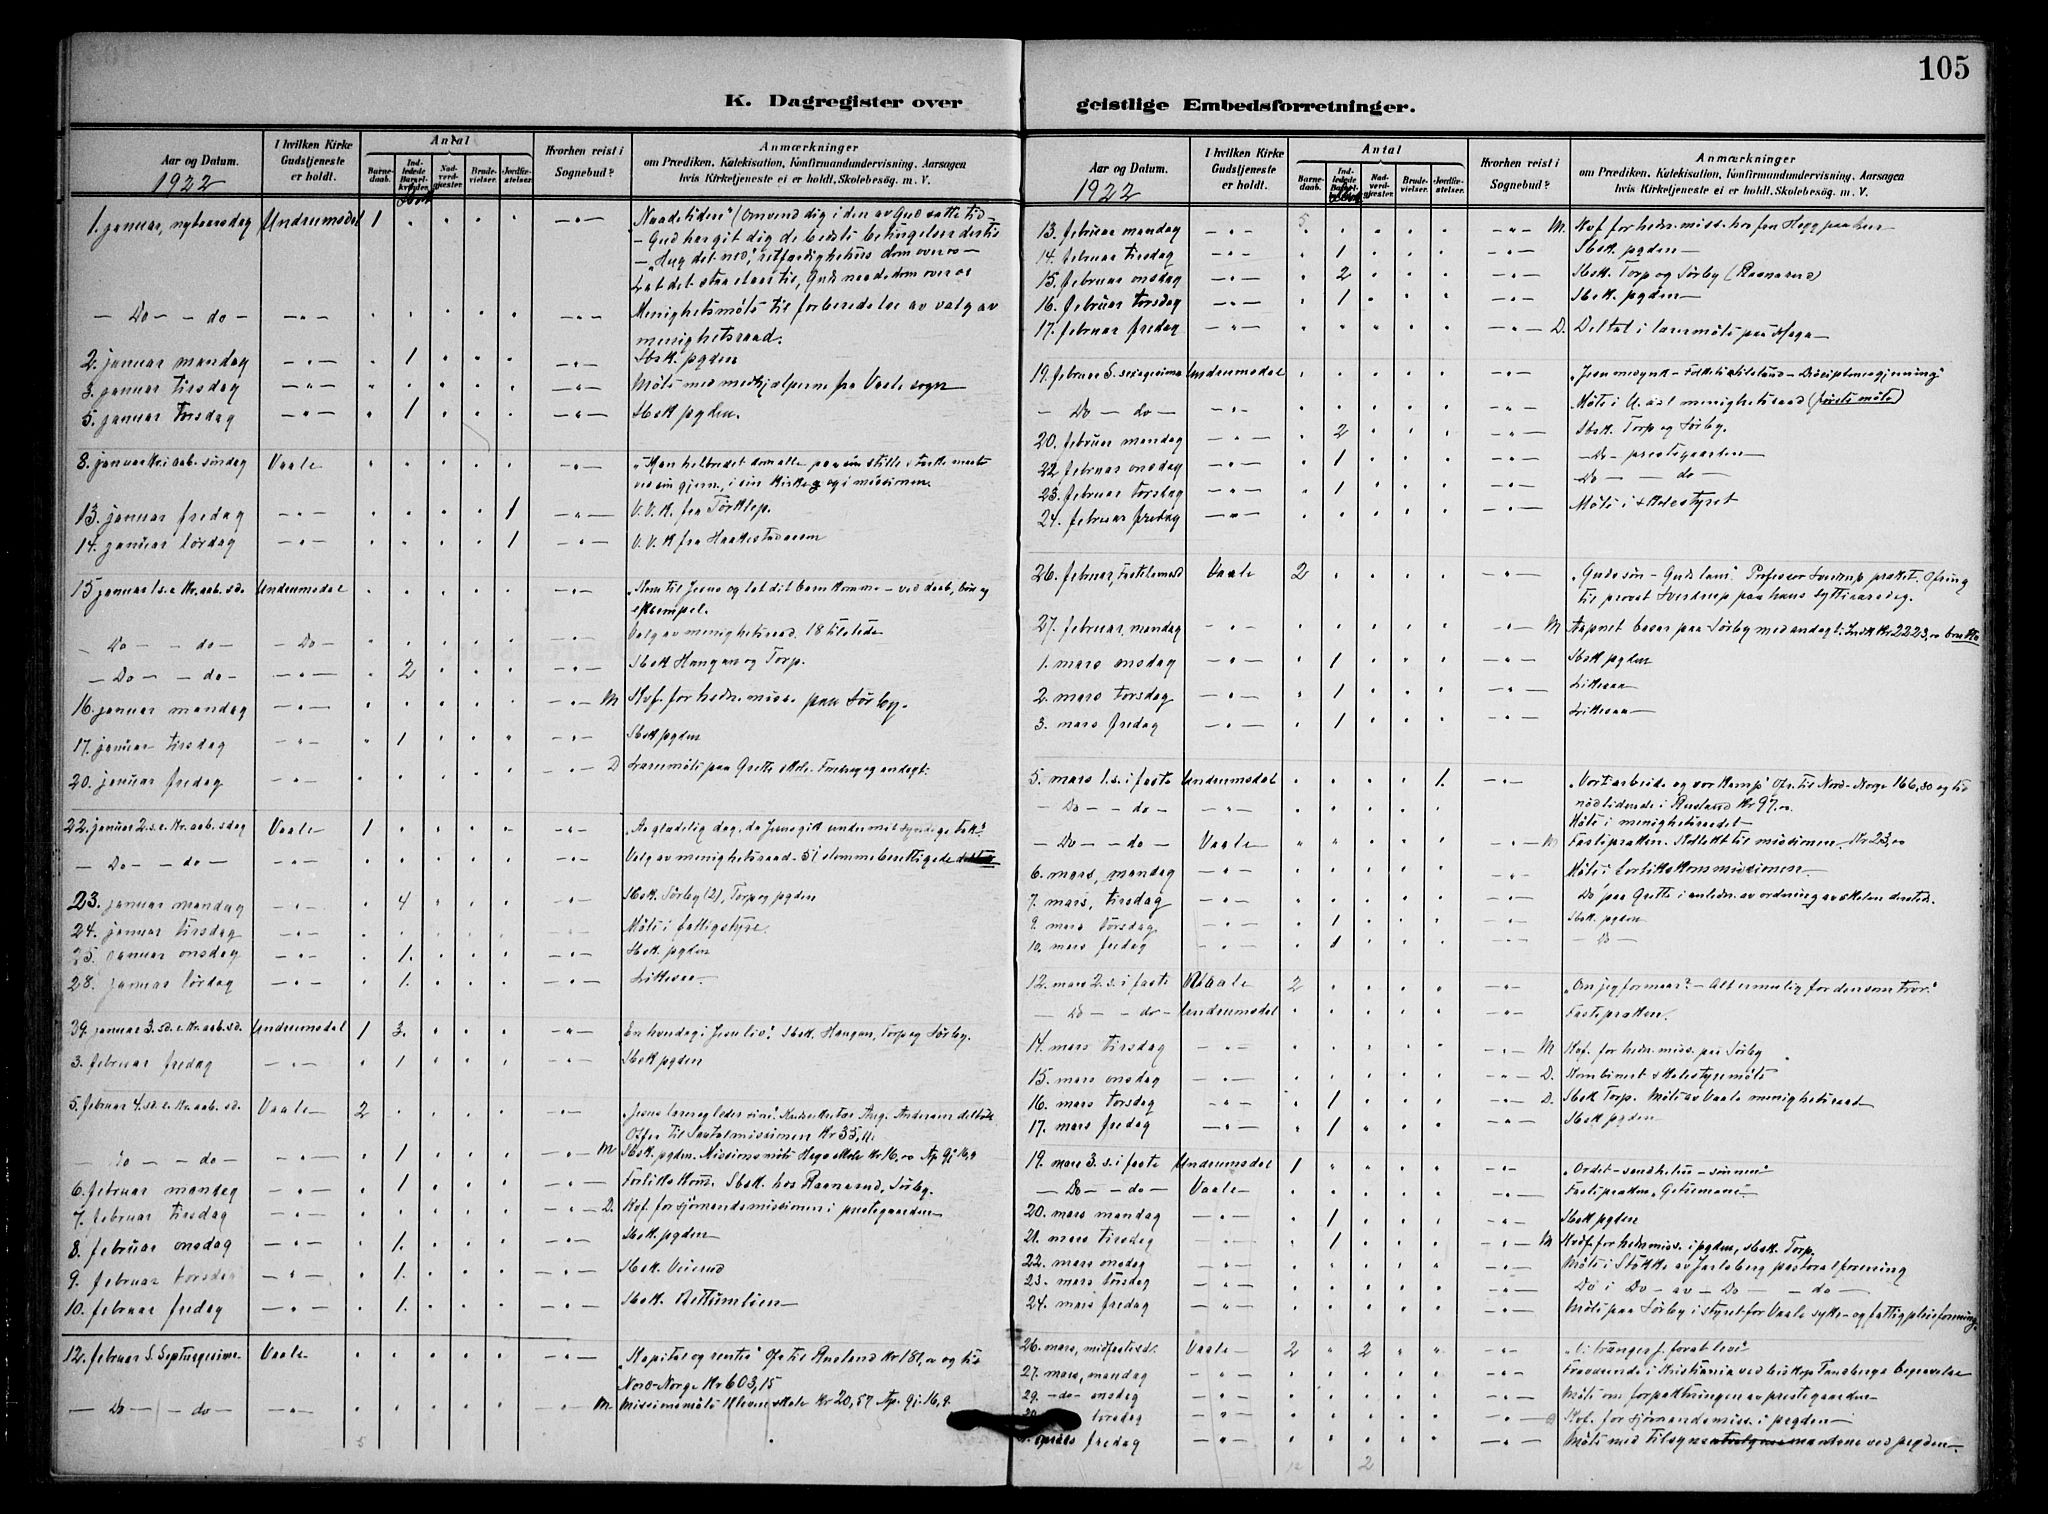 105
K. Dagregister over
geistlige Embedsforretninger.
Aar og Datum.
1922
I hvilken Kirke
Gudstjeneste
er holdt.
Antal
Barne-
daab.
Ind-
ledede
Barsel-
kvinder
Nad-
verd-
gjester.
Brude-
vielser.
Jordfæ-
stelser.
Hvorhen reist i
Sognebud?
Anmærkninger
om Prædiken, Katekisation, Konfirmandundervisning, Aarsagen
hvis Kirketjeneste ei er holdt, Skolebesøg. m. V.
1. januar, nytaarsdag Undrumsdal 1 "Naadetiden" (Omvend dig i den av Gud satte tid
- Gud har git dig de bedste betingelser dertil
- "Hug det ned", retfærdighetens dom over os -
Lat det staa et aar til, Guds naade dom over os
- Do - - do - Menighetsmøte til forberedelse av valg av
menighetsraad.
2. januar mandag 1 Sbsk. pgden
3. januar tirsdag Møte med medhjælperne fra Vaale sogn
5. januar torsdag 1 Sbsk. pgden.
8. januar Kr. aab. søndag Vaale "Han helbredet dem alle paa sin stille sterke maate
ved sin gjern., i sin kirke og i missionen.
13. januar fredag 1 V.V.K. fra
14. januar lørdag 1 V.V.K. fra
15 januar 1 s. e. Kr. aab. sd. Undrumsdal "Kom til Jesus og lat dit barn komme - ved daab, bøn og
eksempel.
- Do - - do - - Do - Valg av menighetsraad. 18 tilstede
- Do - - do - 2 Sbsk Haugan og Torp.
16. januar mandag M Kvf. for hedn. miss. paa Sørby.
17. januar tirsdag 1 Sbsk pgden
20. januar fredag D Læremøte paa Grette skole. Foredrag og andagt.
22. januar 2. s. e. Kr. aab. sdag Vaale 1 "En glædelig dag, da Jesus gik under mit syndige tak."
- Do - - do - Valg av menighetsraad - 51 stemmeberettigede
23. januar mandag 4 Sbsk Sørby (2), Torp og pgden
24. januar tirsdag Møte i fattigstyre.
25. januar onsdag 1. Sbsk. pgden
28. januar lørdag 1. Likesaa
29. januar 3. sd. e. Kr. aab. sd. Undrumsdal 1 3. En hverdag i Jesu liv". Sbsk. Haugan, Torp og Sørby.
3. februar fredag 1 Sbsk pgden
5. februar 4. sd. e. Kr. aab. sd. Vaale 2 Aug. Andersen
Offer til Santalmissionen Kr 35,11.
- Do - - do - 1 M Sbsk. pgden. Missionsmøte Kr 16,00 Ap. gj. 16,9
6. februar mandag 1 Sbsk. hos Ravnerud, Sørby.
7. februar tirsdag D. Kvf. for sjømandsmissionen i prestegaarden
8. februar onsdag 1. Sbsk. pgden
9. februar torsdag 1. Sbsk. Veierud
10. februar fredag 1. Sbsk.
12. februar S. Septuagesima Vaale "Kapital og rente" Ofr. til Rusland Kr 181,00 og til
Nord-Norge Kr 603,15
- Do - - do - M. Missionsmøte Kleven skole Kr 20,57 Ap. gj. 16,9.
5
Aar og Datum.
1922
I hvilken Kirke
Gudstjeneste
er holdt.
Antal
Barne-
daab.
Ind-
ledede
Barsel-
kvinder
Nad-
verd-
gjester.
Brude-
vielser.
Jordfæ-
stelser.
Hvorhen reist i
Sognebud?
Anmærkninger
om Prædiken, Katekisation, Konfirmandundervisning, Aarsagen
hvis Kirketjeneste ei er holdt, Skolebesøg. m. V.
5
13. februar mandag M. Kvf. for hedn. miss. hos
14. februar tirsdag 1 Sbsk. pgden
15. februar onsdag 2 Sbsk. Torp og Sørby (Ravnerud)
16. februar torsdag 1 Sbsk. pgden
17. februar fredag D. Deltat i læremøte paa
19. februar S. sexagesima Undrumsdal
- Do - do - Møte i U.dal menighetsraad (første møte)
20. februar mandag 2 Sbsk. Torp og Sørby.
22. februar onsdag 1 - Do - prestegaarden
23. februar torsdag 1 Do - - do -
24. februar fredag Møte i skolestyret
26. februar, Fastelavnssd Vaale 2 "Guds søn - Guds lam." Professor Sverdrup præket. Ofring
til provst Sverdrup paa hans syttiaarsdag.
27. februar, mandag M Aapnet basar paa Sørby med andagt. Indk Kr 2223,00 brutto
1. mars onsdag 1 Sbsk pgden
2. mars torsdag 1 Likesaa
3. mars fredag 1 Likesaa
5. mars 1. s. i faste Undrumsdal 1. "Vort arbeide og vor kamp" Ofr. til Nord-Norge 166,30 og til
nødlidende i Rusland Kr 97.00
- Do - - do - Møte i menighetsraadet
- Do - - do - Vaale M Fastepræken. Kollekt til missionen Kr 23,00
6. mars, mandag Møte i forlikskommissionen.
7. mars, tirsdag Do paa Grette i anledn. av ordning av skolen dersteds.
9. mars torsdag 1 Sbsk. pgden
10. mars fredag 1 - Do -
12. mars 2. s. i faste Vaale 2 "Om jeg formaar? - Alt er mulig for den som tror."
- Do - - do - Undrumsdal Fastepræken.
14. mars tirsdag M Kvf. for hedn. miss. paa Sørby
15. mars onsdag D. Kombinert skolestyremøte
16. mars torsdag 1 D. Sbsk Torp. Møte av Vaale menighetsraad
17. mars fredag 1 Sbsk. pgden
19. mars 3. s. i faste Undrumsdal 1
- Do - - do - Vaale Fastepræken "Getsemane"
20. mars mandag 1 Sbsk pgden
21. mars tirsdag 1 M Kvf. for hedn. miss. i pgden, Sbsk. Torp.
22. mars onsdag Møte i Stokke av Jarlsberg pastoralforening
23. mars torsdag Do i Do - av - Do - - do -
24. mars fredag Møte paa Sørby i styret for Vaale syke- og fattigpleieforening.
26. mars, midfastesd. Vaale 2 2
27. mars, mandag Fraværende i Kristiania ved biskop Tandbergs begravelse
29. - do - onsdag Møte om forpaktningen av prestegaarden
30. torsdag Kvf. for sjømandsmiss. i pgden
fredag Møte med ved pgden
12 2